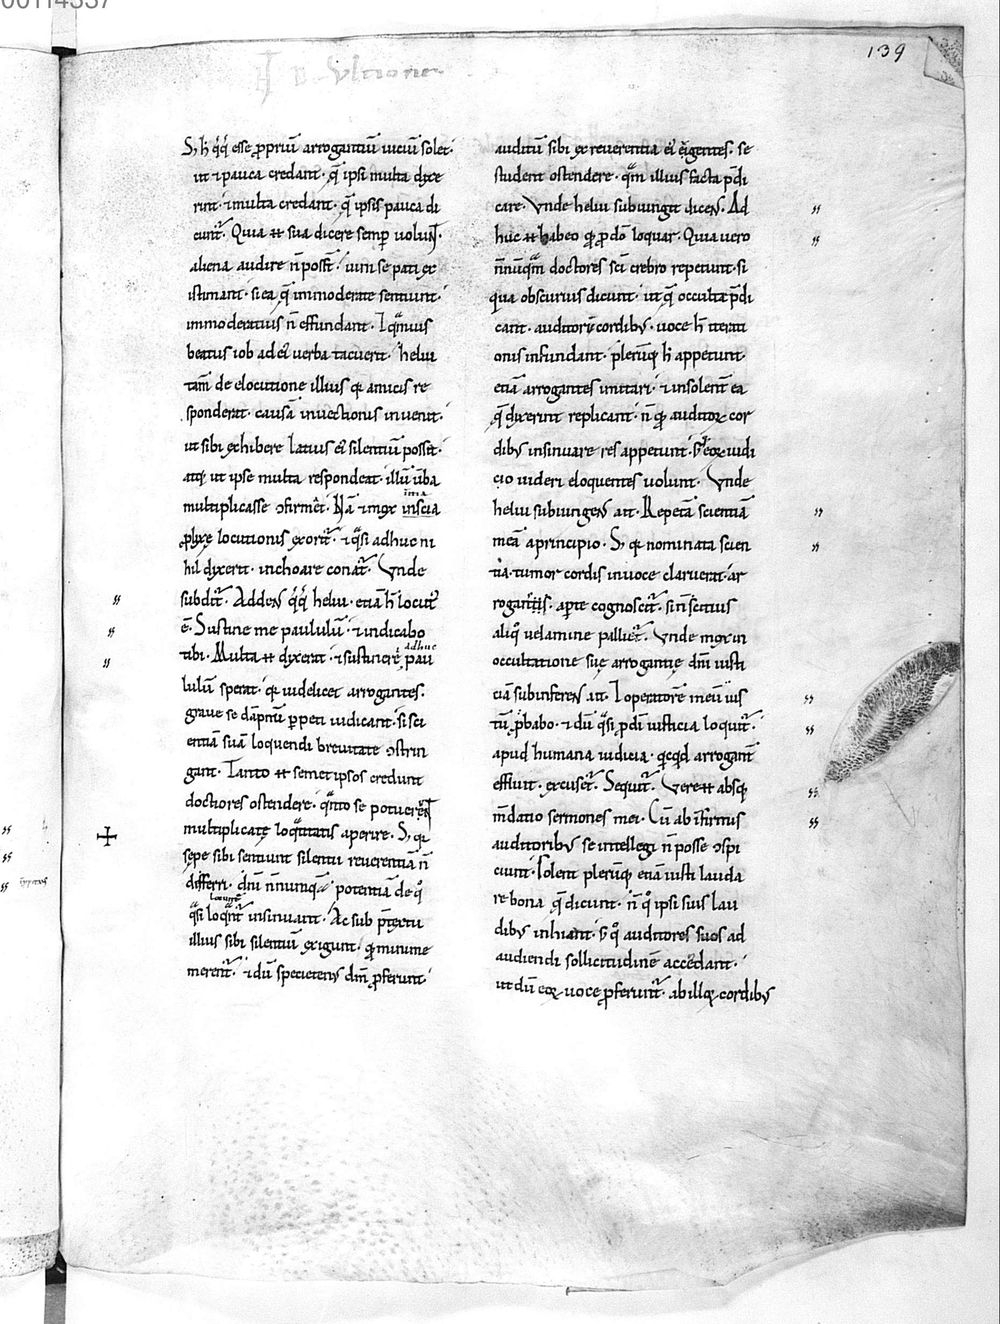 139
S; h̄ q̊q̊ esse ꝓpriū arrogantiū uiciū solet·
ut ⁊ pauca credant· q̄ ipsi multa dixe
rint· ⁊ multa credant· q̄ ipsis pauca di
cunt᷑. Quia ⁊⁊ sua dicere semp̄ uolunt·
aliena audire n̄ poss̄t· uim se pati ex
istimant· si ea q̄ immoderate sentiunt·
immoderatius n̄ effundant·
beatus iob ad ei᷒ uerba tacuerit· heliu
tam̄ de elocutione illius q̄ amicis re
sponderat· causā inuectionis inuenit·
ut sibi exhibere latius ei᷒ silentiū posset·
atq; ut ipse multa respondeat· illū ūba
multiplicasse ɔfirmet· Nā ⁊ mox inscia
ima
plixe locutionis exorit᷑· ⁊ q̊si adhuc ni
hil dixerit· inchoare conat᷑· Vnde
subdit᷑· Addens q̊q̊ heliu· etiā h̄ locut᷒
ē· Sustine me paululū· ⁊ indicabo
tibi· Multa ⁊⁊ dixerat· ⁊ sustinere pau
adhuc
lulū sperat· q̄ uidelicet arrogantes·
graue se dāpnū ꝑpeti iudicant· si sci
entiā suā loquendi breuitate ɔstrin
gant· Tanto ⁊⁊ semetipsos credunt
doctiores ostendere· q̊nto se potuerint
multiplicate loq̊citatis aperire· S; q̄
sepe sibi sentiunt silentii reuerentiā n̄
differri· dn̄i nn̄unq̊ potentiā de q̊
q̊si loq̊nt᷑ insinuant· Ac sub p̄textu
illius sibi silentiū exigunt· q̄ minime
merent᷑· ⁊ dū specietenus dm̄ p̄ferunt·
auditū sibi ex reuerentia ei᷒ exigentes· se
student ostendere· q̊m illius facta p̄di
care· Vnde heliu subiungit dicens· Ad
huc ⁊⁊ habeo q̄ ꝓ dō loquar· Quia uero
nn̄unq̊m doctores sci crebro repetunt· si
qua obscurius dicunt· ut q̄ occulta p̄di
cant· auditorū cordib᷒· uoce h̄ iterati
onis infundant· plerūq; h̄ appetunt·
etiā arrogantes imitari· ⁊ insolent᷑ ea
q̄ dixerint replicant· n̄ q̄ auditoꝝ cor
dib᷒ insinuare res appetunt· s; eoꝝ iudi
cio uideri eloquentes uolunt· Vnde
heliu subiungens ait· Repetā scientiā
meā a principio· S; q̄ nominata scien
tia· tumor cordis in uoce claruerat· ar
rogantis· aperte cognoscit᷑· si n̄ scitius
aliq̊ uelamine palliet᷑· Vnde mox in
occultatione suę arrogantię dm̄ iusti
ciā subinferens ait· ⁊ operatorē meū ius
tū ꝓbabo· ⁊ dū q̊si ꝓ di iusticia loquit᷑·
apud humana iudicia· q̊cq̊d arrogant᷑
effluit· excuset᷑· Sequit᷑· Vere ⁊⁊ absq;
m̄datio sermones mei· Cū ab infirmis
auditorib᷒ se intellegi n̄ posse ɔspi
ciunt· solent plerūq; etiā iusti lauda
re bona q̄ dicunt· n̄ q̊ ipsi suis lau
dib᷒ inhiant· s; q̊ auditores suos ad
audiendi sollicitudinē accedant·
ut dū eoꝝ uoce ꝓferunt᷑· ab illoꝝ cordib᷒